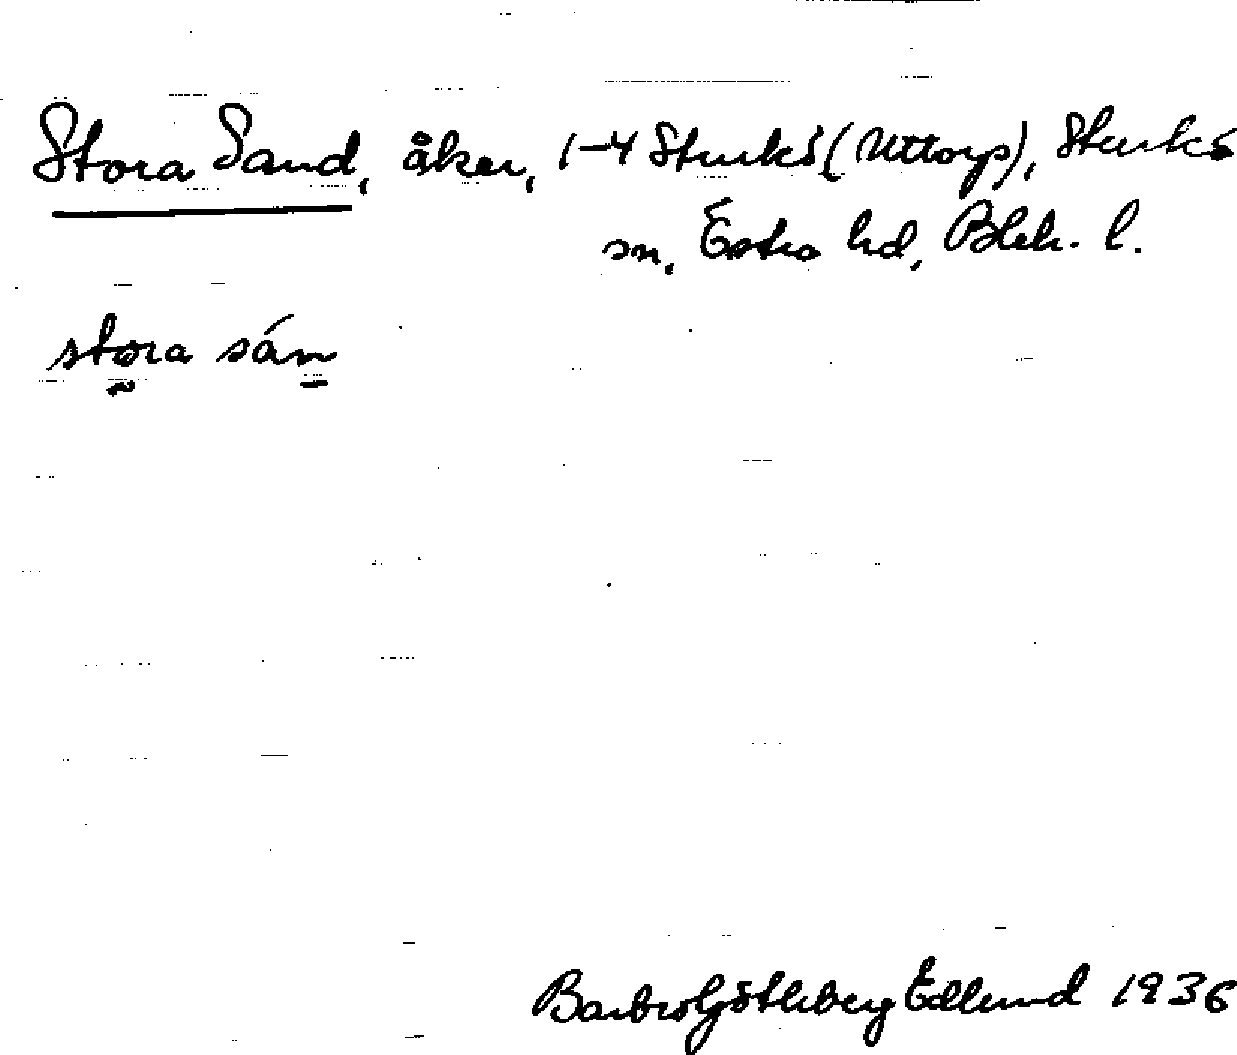 Stora Sand, åker, 1-4 Sturkö (Uttorp), Sturkö
sn, Östra hd, Blek. l.
stora sán
Barbro Götleberg Edlund 1936